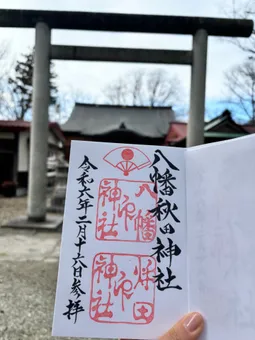 八幡秋田神社
令和六年二月十六日参拝
八幡
神社
神社